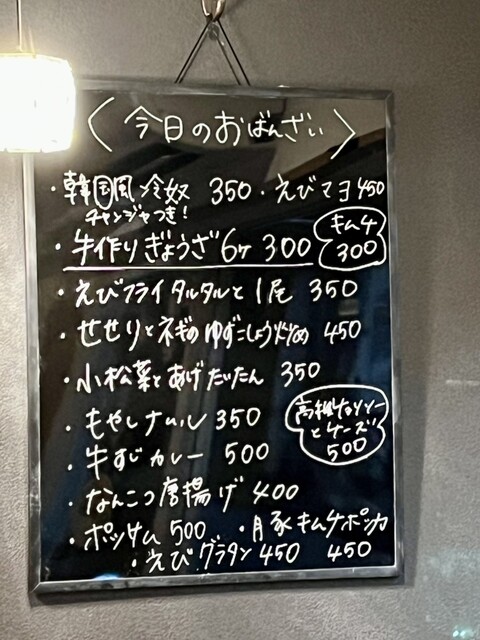 〈今日のおばんざい〉
・韓国風冷奴 350 ・えびマヨ 450
チャンジャつき!
・手作りぎょうざ 6ケ 300
キムチ
300
・えびフライタルタルと 1尾 350
・せせりとネギのゆずこしょう炒め 450
・小松菜とあげだいたん 350
・もやしナムル 350
とチーズ
500
・牛すじカレー 500
・なんこつ唐揚げ 400
・ポッサム 500 ・豚キムチポッカ
・えびグラタン 450 450